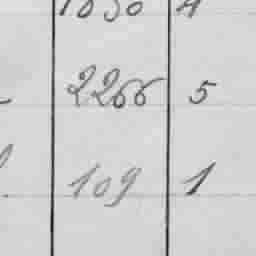 1830 4
2266 5
109 1